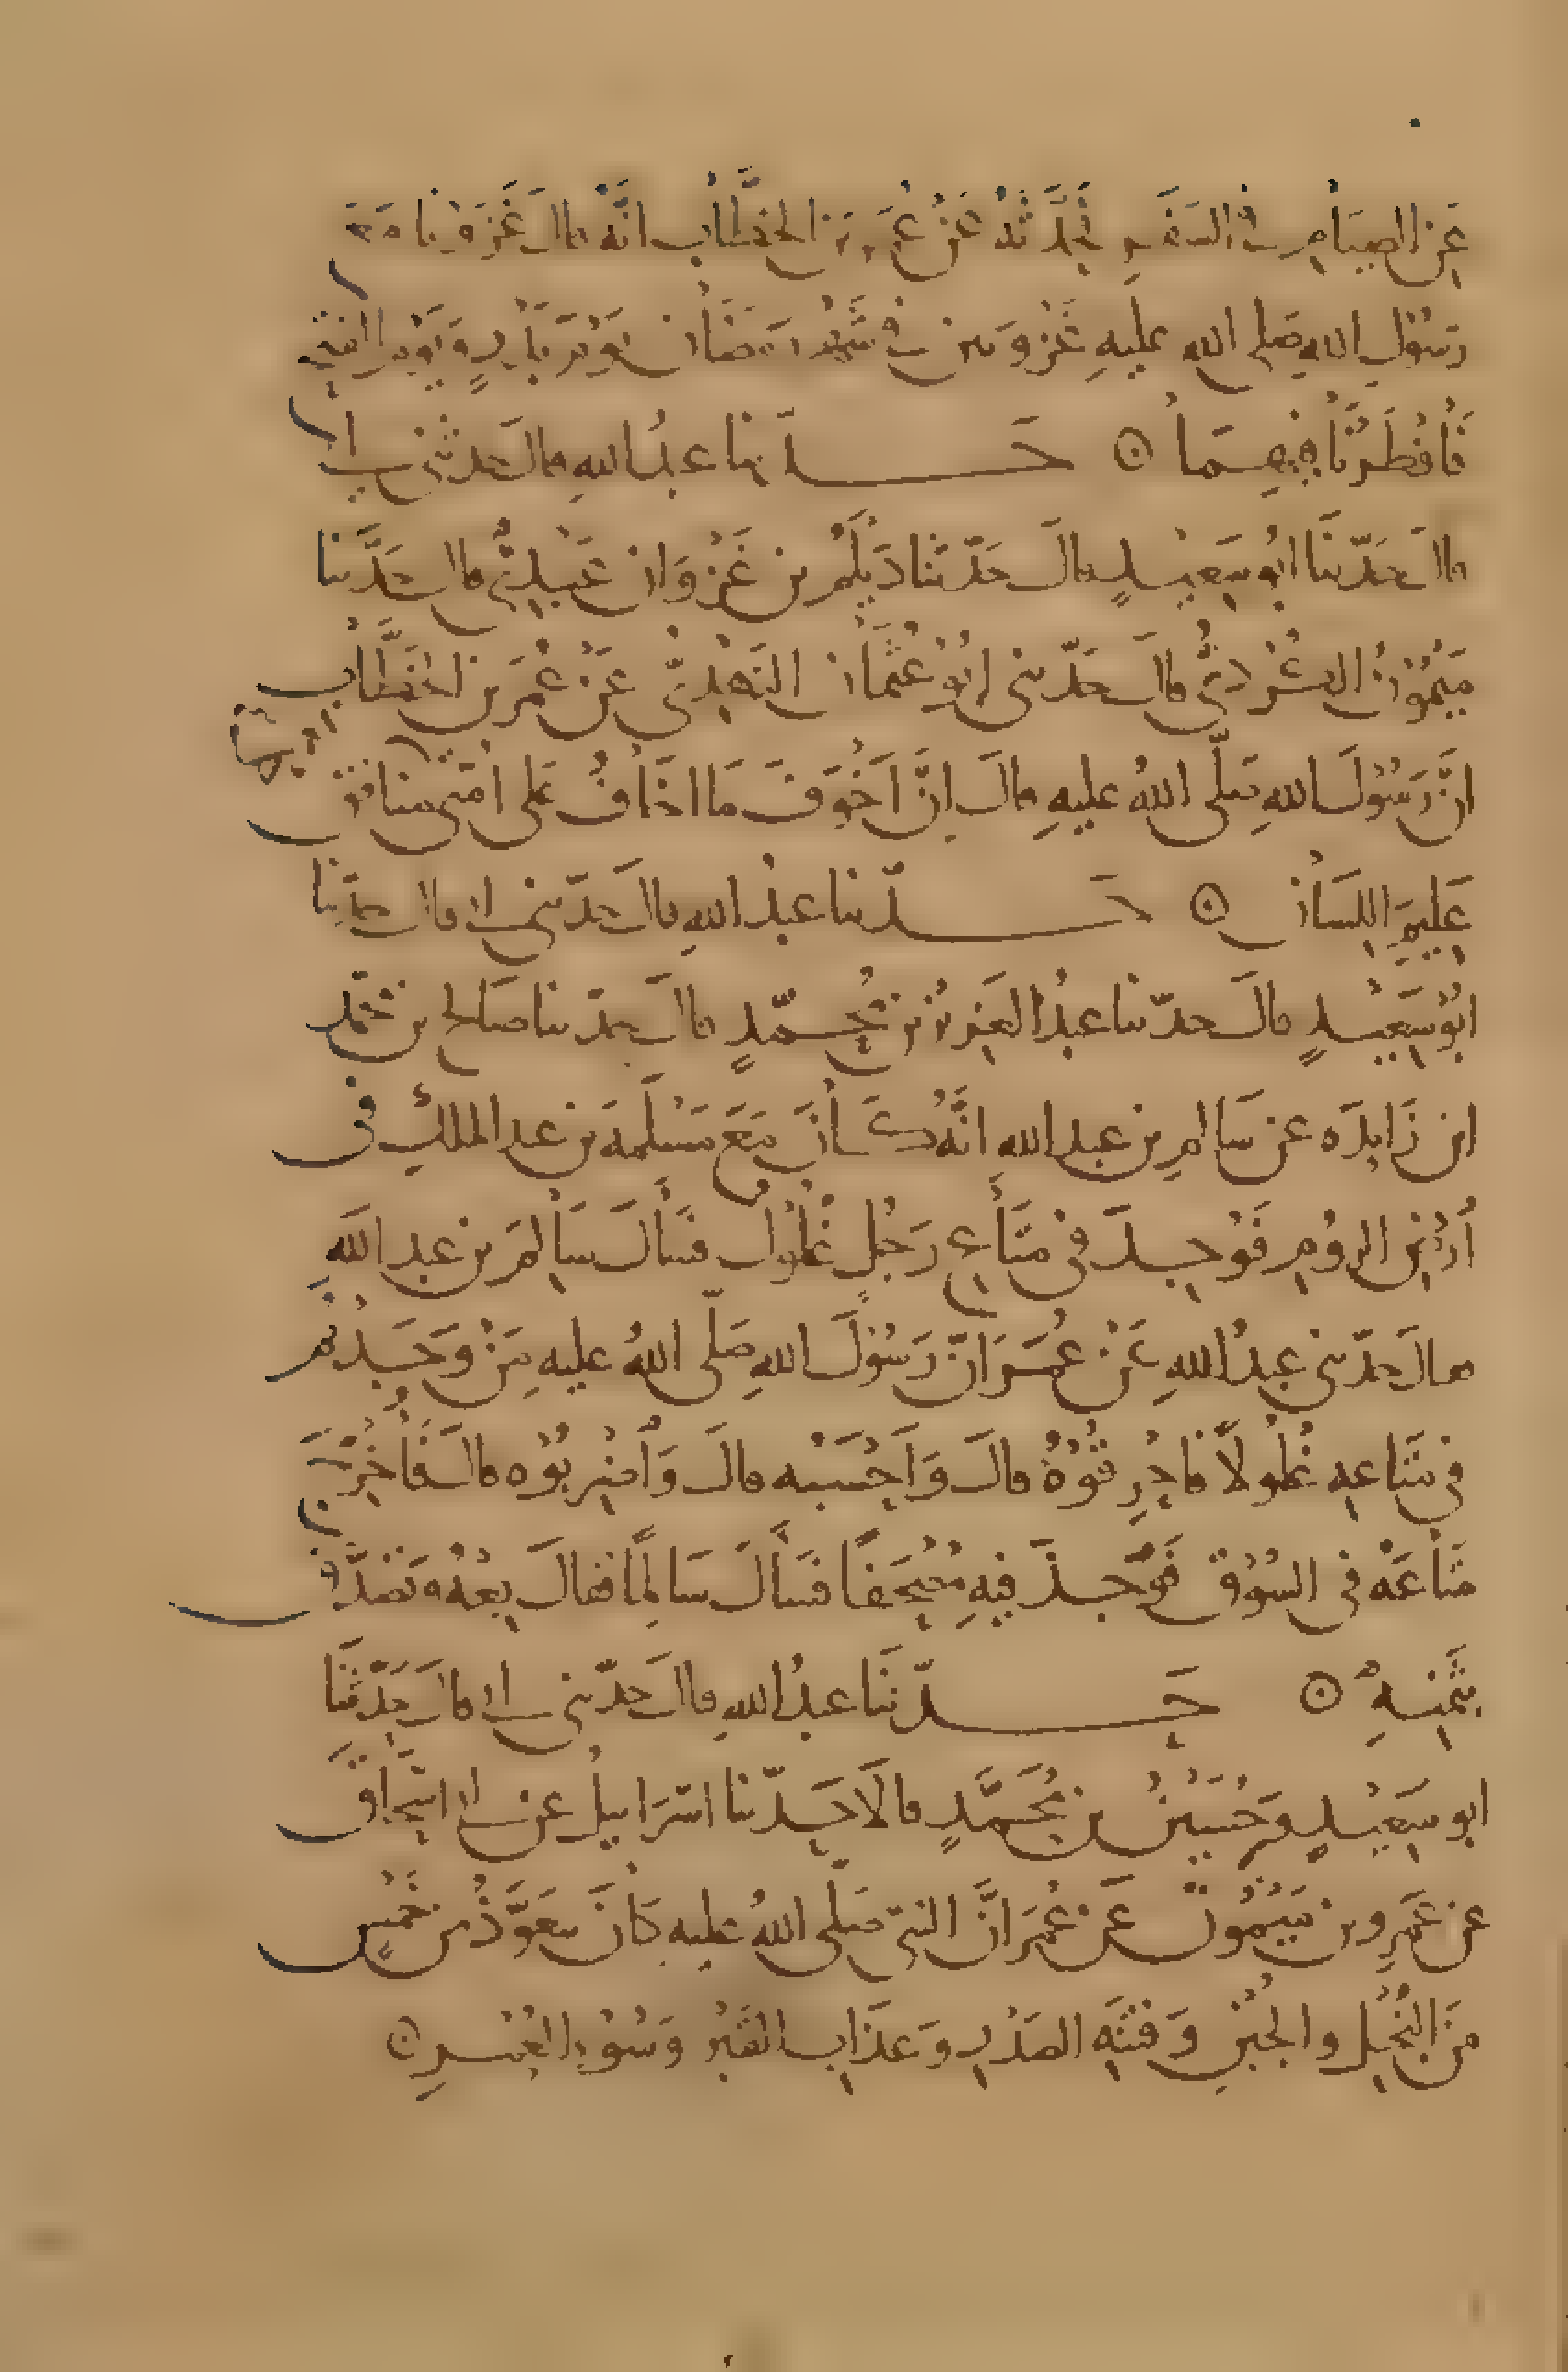 عَنِ الصِيَامِ فى السَفَرِ فَحَدَّثَهُ عَنْ عُمَرَ بنِ الخَطَّابِ انَّهُ قالَ غَزَوْنا مَعَ
رَسُوْلِ اللهِ صَلى الله عليهِ غَزْوَتين فى شَهْرِ رَمَضَانَ يَوْمَ بَدْرٍ وَيَوْمَ الفتحِ
فَأفْطَرْنَا فِيْهِمَا ۞ حَـــدّثنا عبدُ اللهِ قالَ حدثنى ابى
قالَ حَدّثَنَا ابُو سَعِيْدٍ قالَ حَدّثَنا دَيْلَمُ بن غَزْوَان عَبْدِىٌّ قال حَدَّثنا
مَيْمُوْنُ الكُرْدِىُّ قالَ حَدّثنى ابُوْ عُثْمَانَ النَهْدِىّ عَنْ عُمَرَ بن الخَطَّابِ
انَّ رَسُوْلَ اللهِ صَلَّى اللهُ عليهِ قالَ اِنَّ اَخْوَفَ مَا اخَافُ عَلى اُمّتى مُنافق
عَلِيْمِ اللِسَانِ ۞ حَـــدّثنا عبدُ اللهِ قالَ حَدّثنى ابى قال حدّثنا
ابُوْ سَعِيْدٍ قالَ حدّثنا عبدُ العَزِيْزِ بن مُحَمّدٍ قالَ حدّثنا صَالح بن مُحَمَّد
ابن زَايدَه عن سَالِمِ بن عبد الله انَّهُ كَانَ مَعَ مَسْلَمَةَ بن عبد الملكِ فى
اَرْضِ الرُوْمِ فَوُجِدَ فى مَتَاعِ رَجُلٍ غُلُوْلٌ فسَألَ سَالِمَ بن عبد اللهِ
فقالَ حدّثنى عبدُ اللهِ عَنْ عُمَرَ انّ رَسُوْلَ اللهِ صَلّى اللهُ عليهِ مَنْ وَجَدْتُم
فى مَتَاعِهِ غُلُولاً فَاحْرِقُوْهُ قالَ وَاَحْسَبُه قالَ وَاضْرِبُوْه قالَ فَأَخْرَجَ
مَتَاعَهُ فى السُوْقِ فَوَجَدَ فِيْهِ مُصْحَفًا فسَألَ سَالِمًا فقالَ بِعْهُ وَتَصَدَّقْ
بِثَمَنِهِ ۞ حَـــدّثنَا عبدُ اللهِ قالَ حَدّثنى ابى قالَ حَدَّثَنَا
ابو سَعِيْدٍ وَحُسَيْنُ بن مُحَمَّدٍ قالَا حَدّثنا اسْرَايِيلُ عن ابى اسْحَاقَ
عن عَمْرِو بن مَيْمُونٍ عَن عُمَرَ انَّ النبىّ صَلّى اللهُ عليه كَانَ يتعَوَّذُ من خَمْسٍ
مِنَ البُخْلِ والجُبْنِ وَفتنَةِ الصَدْرِ وَعَذَابِ القَبْرِ وَسُوْءِ العُمْرِ ۞